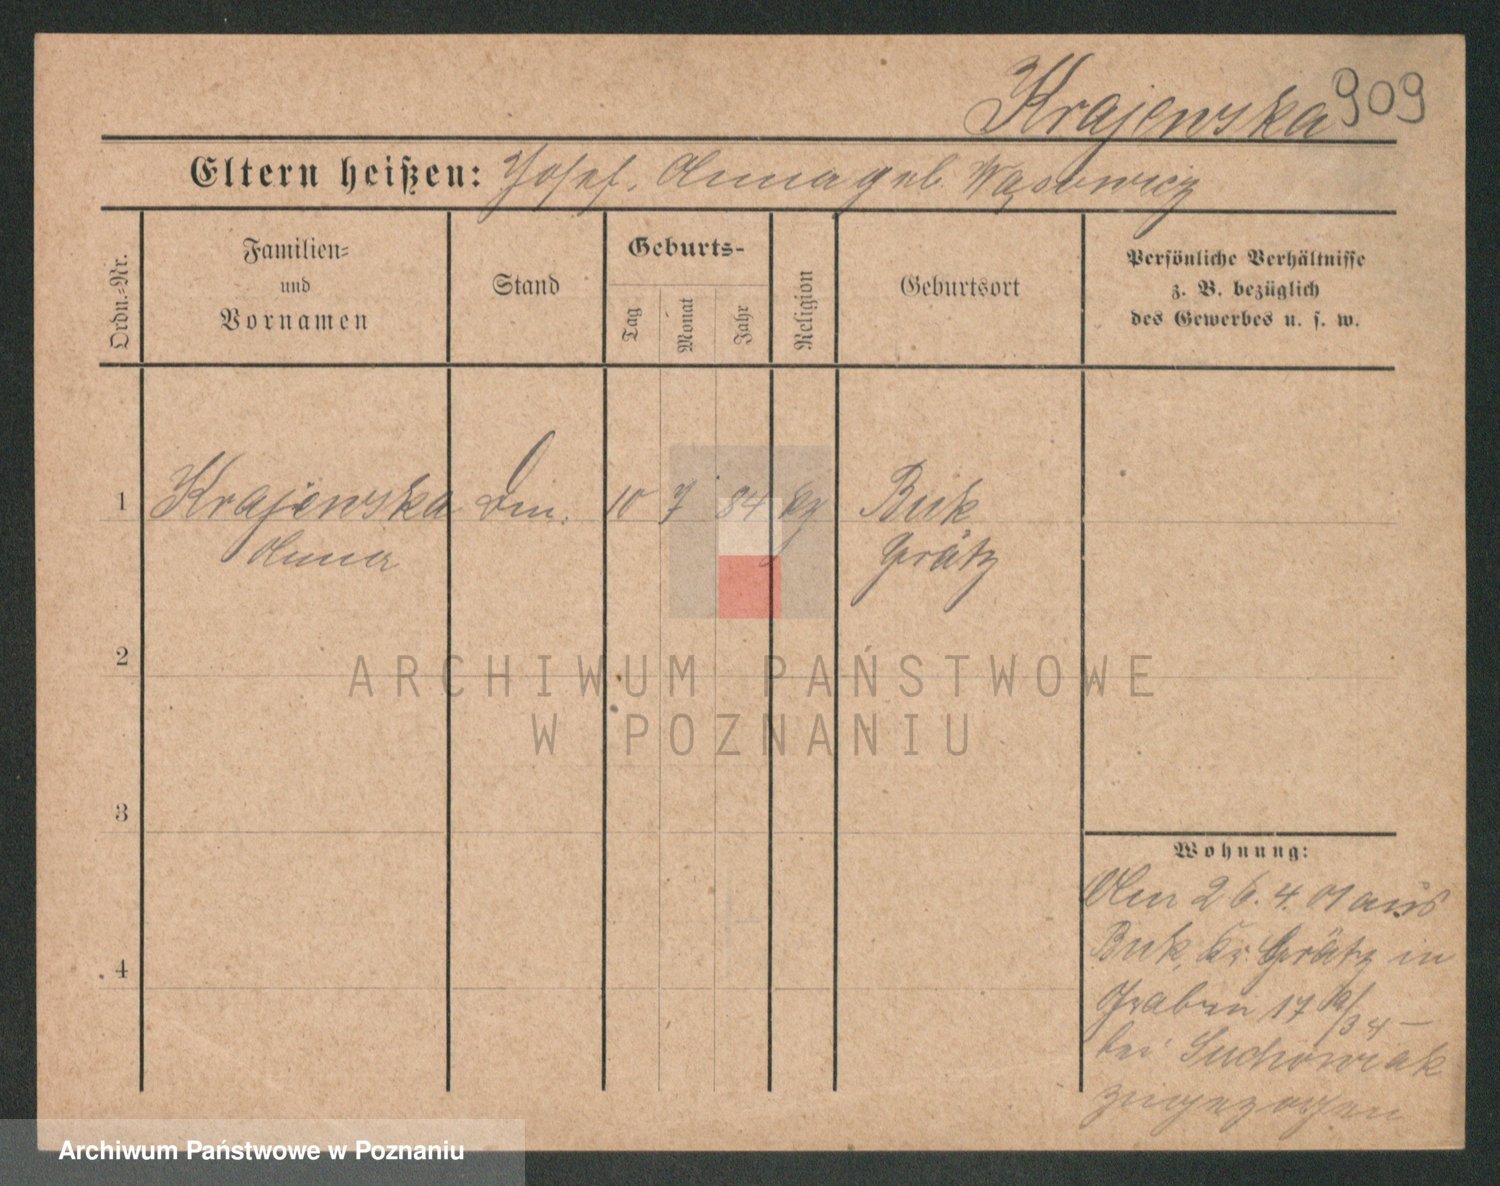 Krajewska 909
Eltern heißen: Josef, Anna geb. Wąsowicz
Ordn.-Nr.
Familien-
und
Vornamen
Stand
Geburts-
Tag
Monat
Jahr
Religion
Geburtsort
Persönliche Verhältnisse
z. B. bezüglich
des Gewerbes u. s. w.
1 Krajewska Din. 10 7 84 kg Buk
Anna Grätz
2
ARCHIWUM PAŃSTWOWE
W POZNANIU
3
Wohnung:
Am 26.4.01 aus
Buk, Kr Grätz in
4
Graben 17
bei Suchowiak
zugezogen
Archiwum Państwowe w Poznaniu